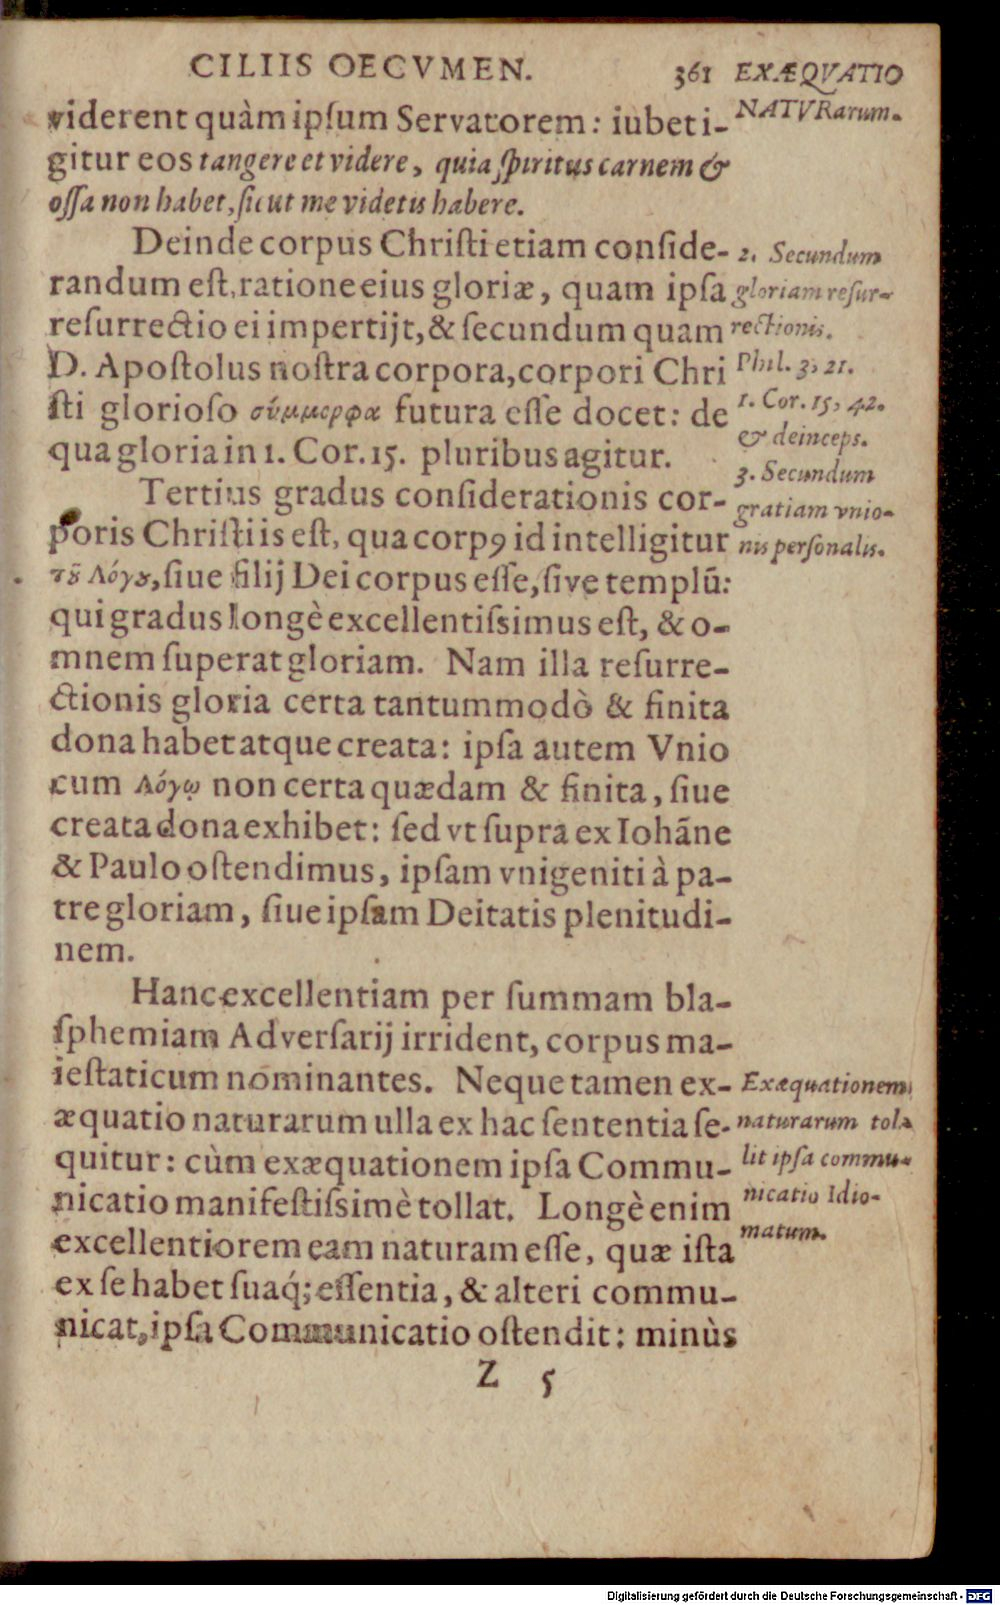 CILIIS OECVMEN. 361
EXÆQVATIO
NATVRarum.
viderent quàm ipſum Servatorem: iubet i-
gitur eos tangere et videre, quia ſpiritus carnem &
oſſa non habet, ſicut me videtis habere.
Deinde corpus Chriſti etiam conſide-
randum eſt, ratione eius gloriæ, quam ipſa
reſurrectio ei impertijt, & ſecundum quam
D. Apoſtolus noſtra corpora, corpori Chri
ſti glorioſo σύμμορφα futura eſſe docet: de
qua gloria in 1. Cor. 15. pluribus agitur.
2. Secundum
gloriam reſur-
rectionis.
Phil. 3, 21.
1. Cor. 15, 42.
& deinceps.
Tertius gradus conſiderationis cor-
poris Chriſti is eſt, qua corpꝰ id intelligitur
τȣ͂ Λόγȣ, ſiue filij Dei corpus eſſe, ſive templū:
qui gradus longè excellentiſsimus eſt, & o-
mnem ſuperat gloriam. Nam illa reſurre-
ctionis gloria certa tantummodò & finita
dona habet atque creata: ipſa autem Vnio
cum Λόγῳ non certa quædam & finita, ſiue
creata dona exhibet: ſed vt ſupra ex Iohãne
& Paulo oſtendimus, ipſam vnigeniti à pa-
tre gloriam, ſiue ipſam Deitatis plenitudi-
nem.
3. Secundum
gratiam vnio-
nis perſonalis.
Hanc excellentiam per ſummam bla-
ſphemiam Adverſarij irrident, corpus ma-
ieſtaticum nominantes. Neque tamen ex-
æquatio naturarum ulla ex hac ſententia ſe-
quitur: cùm exæquationem ipſa Commu-
nicatio manifeſtiſsimè tollat. Longè enim
excellentiorem eam naturam eſſe, quæ iſta
ex ſe habet ſuaq́; eſſentia, & alteri commu-
nicat, ipſa Communicatio oſtendit: minùs
Exæquationem
naturarum tol-
lit ipſa commu-
nicatio Idio-
matum.
Z 5
Digitalisierung gefördert durch die Deutsche Forschungsgemeinschaft - DFG